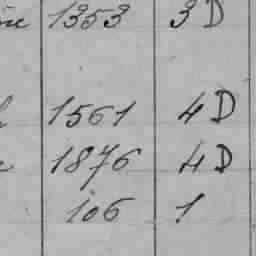 1353 3D
1561 4D
1876 4D
106 1